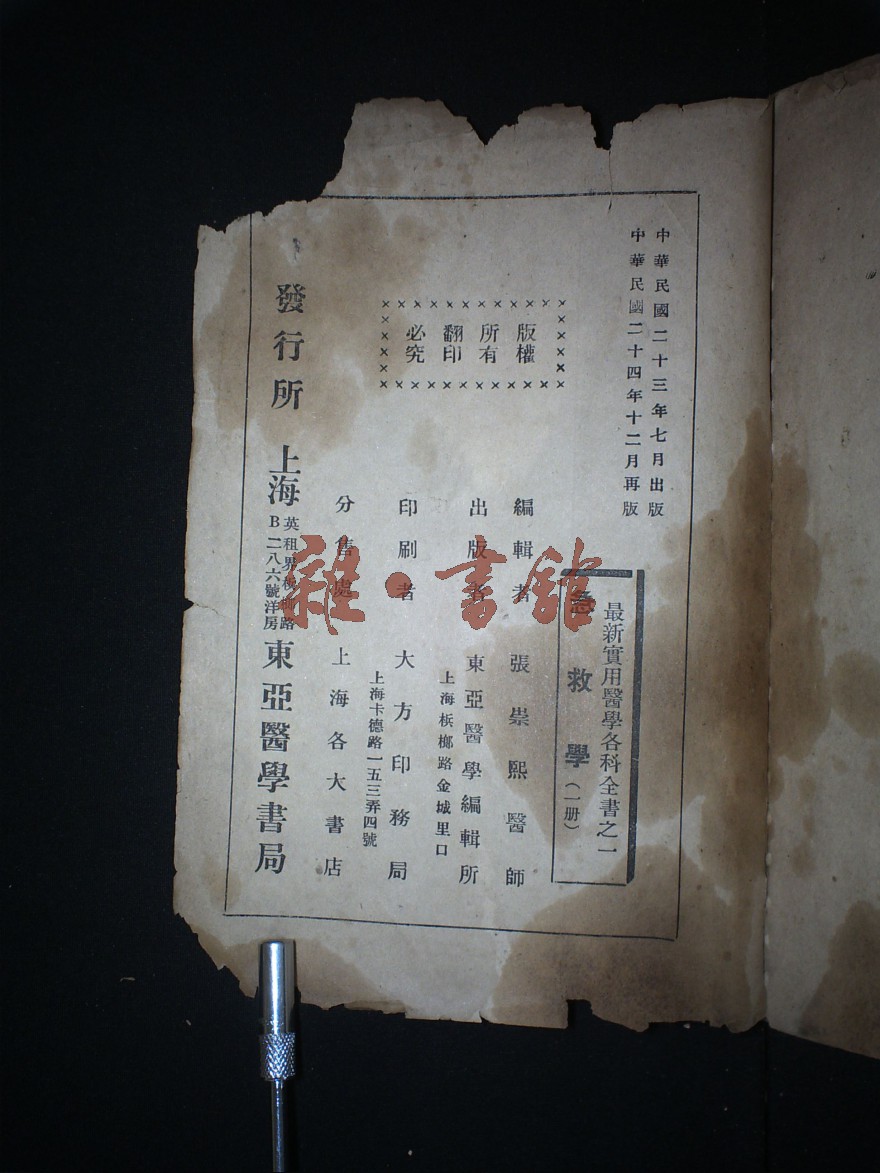 中華民國二十三年七月出版
中華民國二十四年十二月再版
最新實用醫學各科全書之一
急救學(一册)
版權
所有
翻印
必究
編輯者 張崇熙醫師
出版者 東亞醫學編輯所
上海梹榔路金城里口
印刷者 大方印務局
上海卡德路一五三弄四號
分售處 上海各大書店
發行所 上海 英租界梹榔路
B二八六號洋房 東亞醫學書局
雜·書館